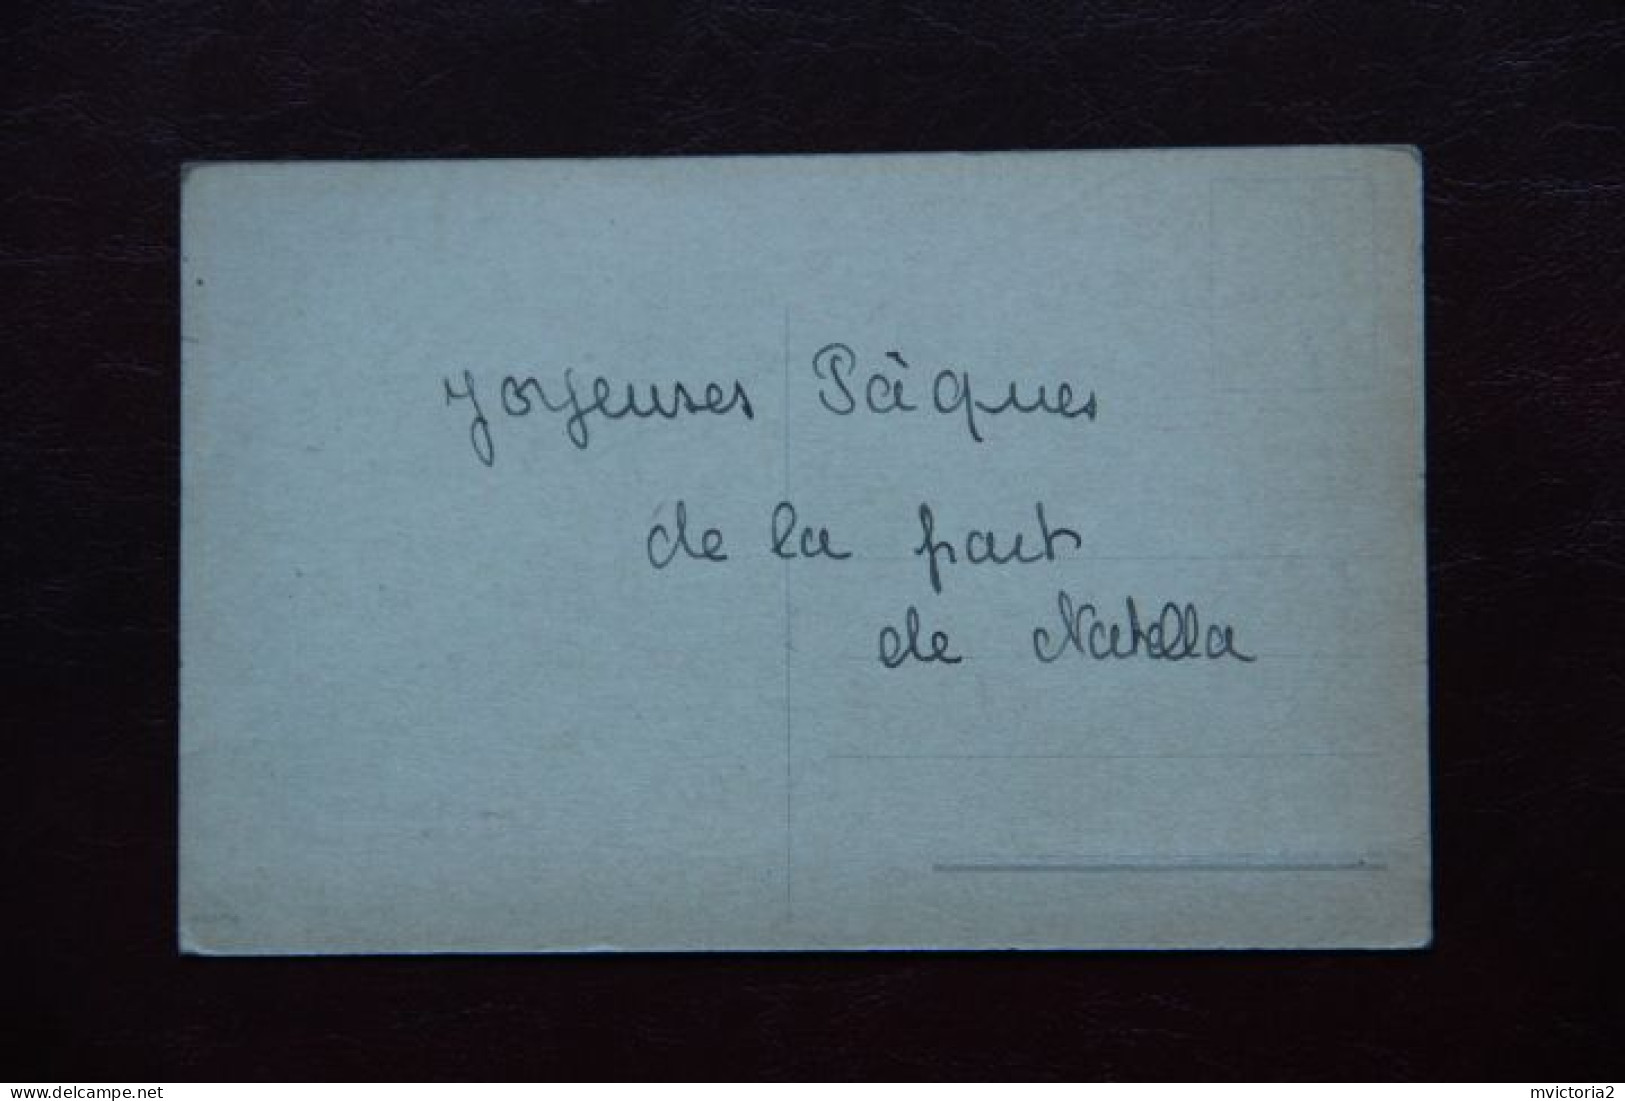 Joyeuses Pâques
de la part
de Natella
delcampe.net
mvictoria2